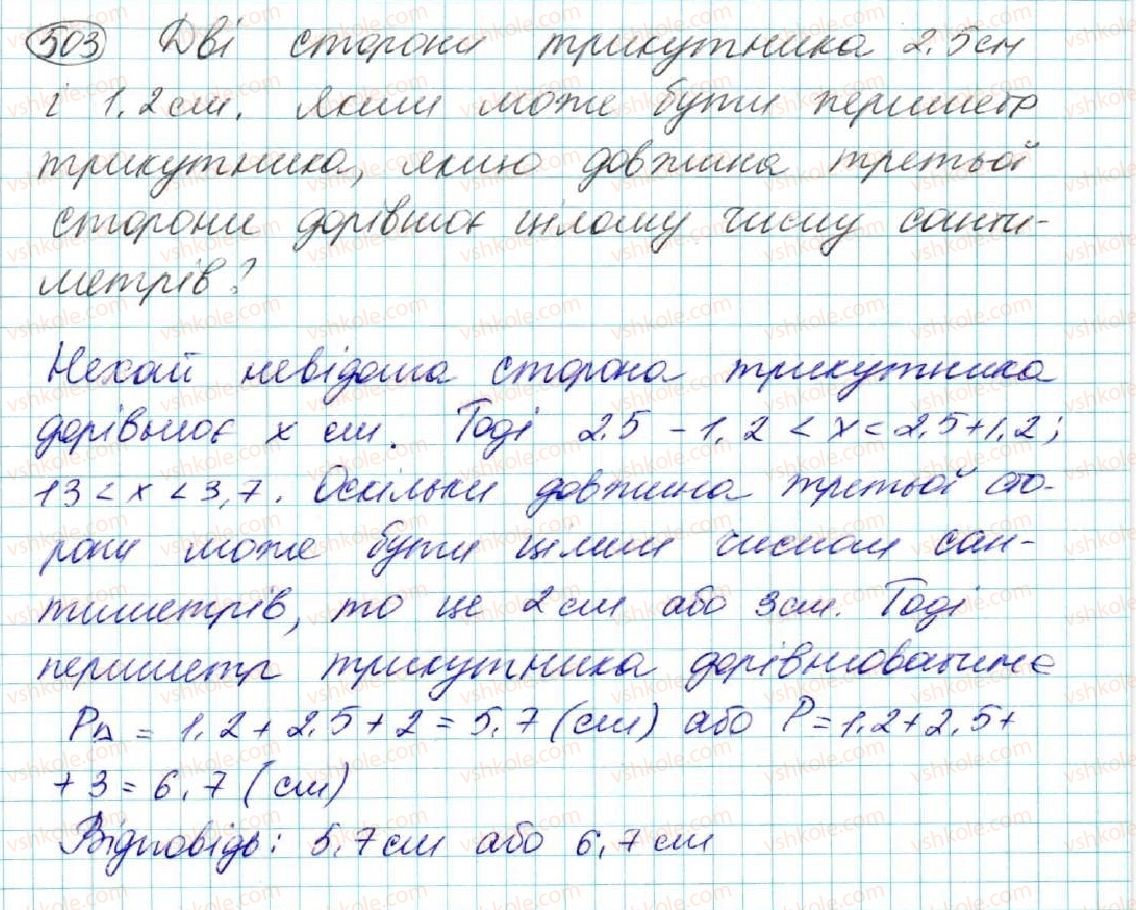 503 Дві сторони трикутника 2,5см
і 1,2см. Яким може бути периметр
трикутника, якщо довжина третьої
сторони дорівнює цілому числу санти-
метрів?
Нехай невідома сторона трикутника
дорівнює х см. Тоді 2,5 - 1,2 < х < 2,5+1,2;
13 < х < 3,7. Оскільки довжина третьої сто-
рони може бути цілим числом сан-
тиметрів, то це 2см або 3см. Тоді
периметр трикутника дорівнюватиме
P∆ = 1,2 + 2,5 + 2 = 5,7 (см) або P = 1,2 + 2,5 +
+ 3 = 6,7 (см)
Відповідь: 5,7см або 6,7см
vshkole.com